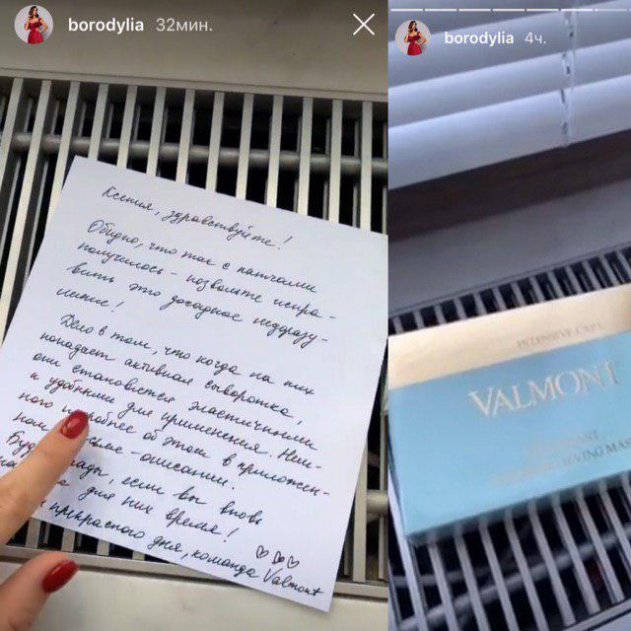 borodylia 32мин.
Ксения, здравствуйте!
Обидно, что так с патчами
получилось - позвольте испра-
вить это досадное недоразу-
мение!
Дело в том, что когда на них
попадает активная сыворотка,
они становятся эластичными
и удобными для применения. Нем-
ного подробнее об этом в приложен-
ном - описании.
Буд рады, если вы вновь
для них время!
прекрасного дня, команда Valmont
borodylia 4ч.
INTENSIVE CARE
VALMONT